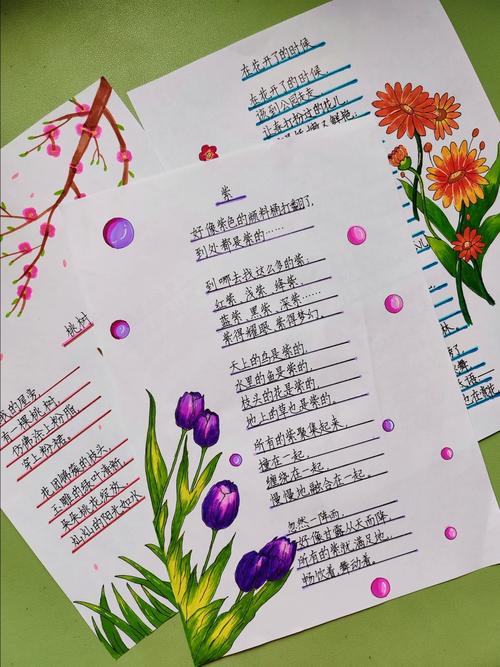 在花开了的时候
在花开了的时候,
该到公园走走,
让在打扮过的花儿,
又鲜艳
紫
好像紫色的颜料桶打翻了,
到处都是紫的……
到哪去找这么多的紫,
红紫、浅紫、绛紫、
蓝紫、黑紫、深紫……
紫得耀眼、紫得梦幻。
天上的鸟是紫的,
水里的鱼是紫的,
枝头的花是紫的,
地上的草也是紫的。
所有的紫聚集起来,
撞在一起,
缠绕在一起,
慢慢地融合在一起。
忽然一阵雨,
好像甘露从天而降,
所有的紫就满足地、
畅饮着,舞动着。
桃树
我的屋旁
有一棵桃树,
仿佛涂上粉脂,
穿上粉裙。
花团锦簇的枝头,
玉雕的绿叶清新
朵朵桃花绽放,
灿灿的阳光如火